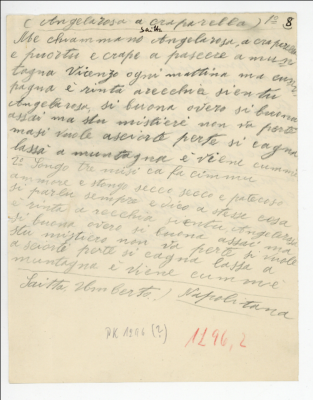 ( Angelarosa a craparella ) 13 8
Saitta
Me chiammano Angelarosa, a craparella
e puortu e crape a pascere a mun
tagna Vicenzo ogni mattina ma cum
pagna e rinto arecchia sientu
Angelarosa, si buona overo si buona
assai ma stu mistiere non va perte
masi vuole asciorte perte si cagna
lassa a muntagna e viene cummé
2) Songo tre misi ca fa cimmu
ammore e stongo secco secco e
si parla sempre e dico a stessa cosa
e rinto a recchia sientu, Angelarosa
si buona overo si buona assai ma
stu mistiero non va perte si vuole
a sciorte perte si cagna lassa a
muntagna e viene cummé
Saitta Umberto. ) Napoletana
AK 1206 (2)
1296, 2